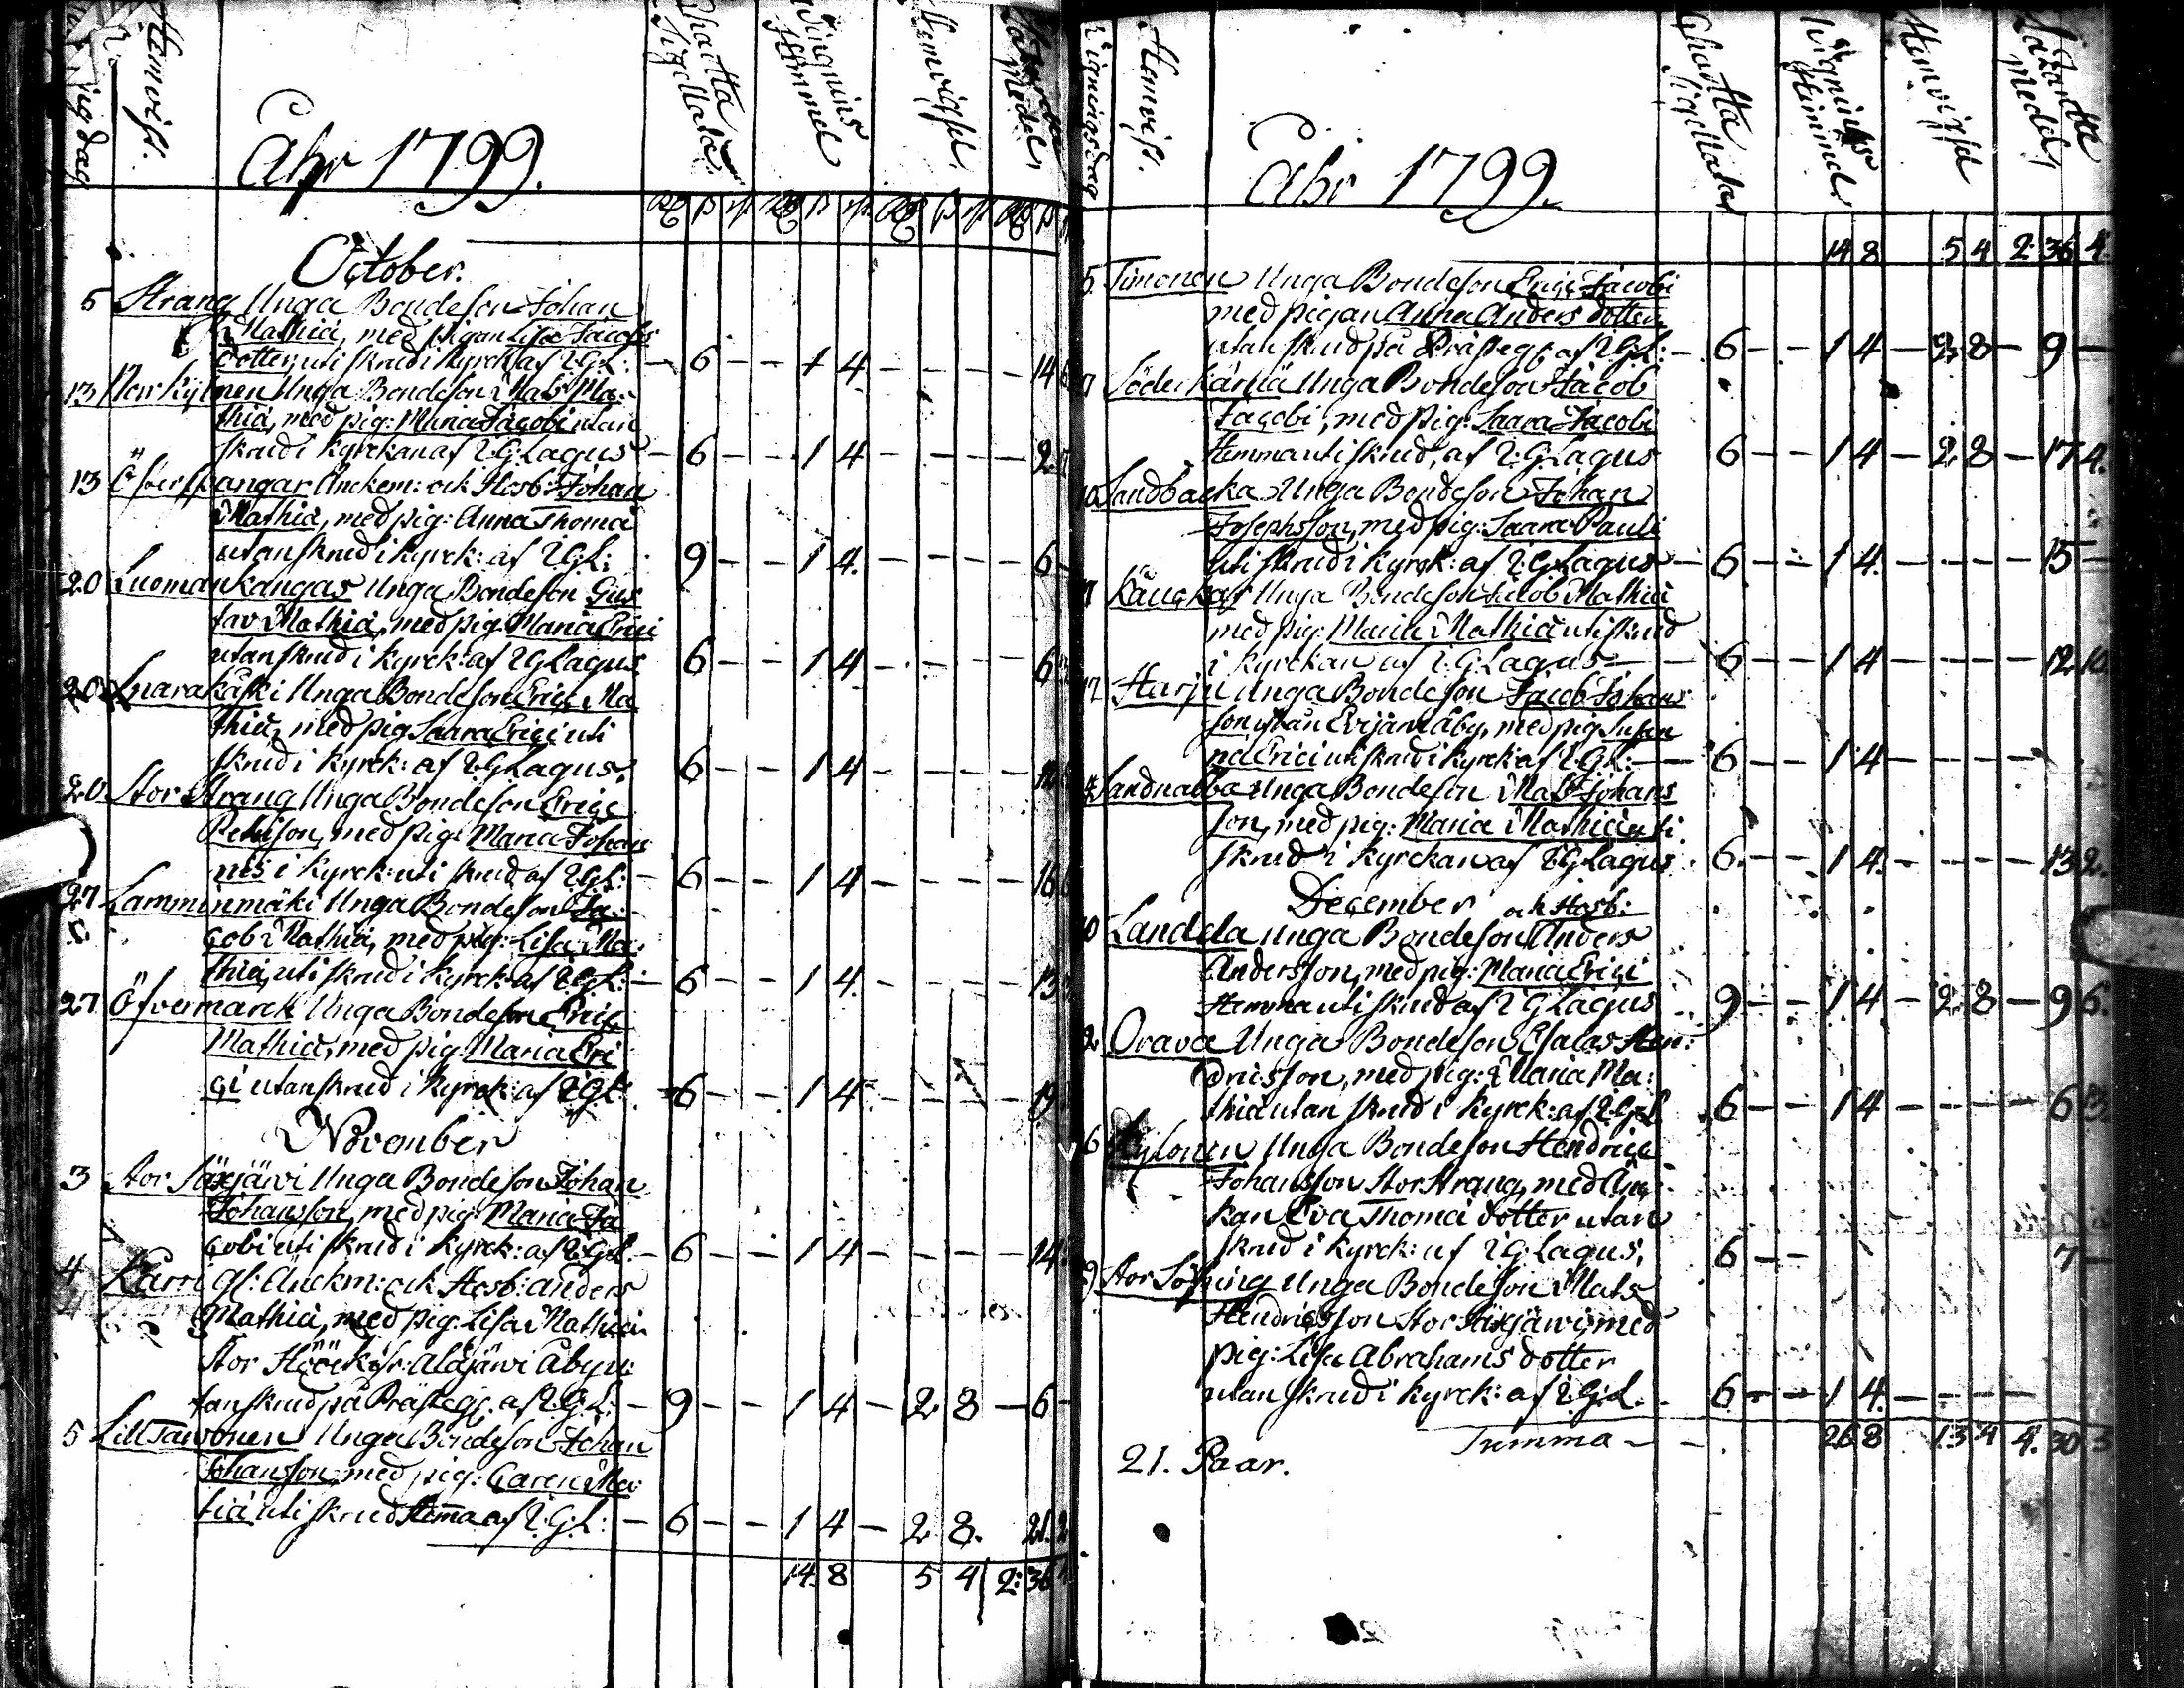 Hemvist.
Chartta Sigillata.
Vignings Stämmel
Hemvigsel.
Låzarette Medel,
Åhr 1799.
October.
5 Strang Unga Bondeson Johan
Mathiæ, med pigan Lisa Jacobs
dotter, uti skrud i Kyrck: af I.G.L: — 6 — — 1 4 — — — — 14
13 Kylmen Unga Bondeson Mats Ma:
thiæ, med pig: Maria Jacobi utan
skrud i Kyrckan af I.G. Lagus — 6 — — 1 4 — — — — 2
13 Öfverstangar Anckem: och Hosb: Johan
Mathiæ, med pig: Anna Thomæ
utan skrud i Kyrck: af I.G.L: 9 — — 1 4. — — — — 6
20 Luomankangas Unga Bondeson Gus
tav Mathiæ, med pig. Maria Erici
utan skrud i Kyrck: af I.G. Lagus 6 — — 1 4 — — — — 6
20 Unga Bondeson Eric Ma
thiæ, med pig Saara Erici uti
skrud i Kyrck: af I.G. Lagus. 6 — — 1 4 — — — —
20 Stor Strang Unga Bondeson Eric
med pig: Maria Johan
nis i Kyrck: uti skrud af I.G.L: — 6 — — 1 4 — — — — 16
27 Lamminmäki Unga Bondeson Ja:
cob Mathiæ, med pig: Lisa Ma:
thiæ, uti skrud i Kyrck: af I.G.L: — 6 — — 1 4. — — — — 13
27 Öfvermarck Unga Bondeson Eric
Mathiæ, med pig: Maria Eri
ci utan skrud i Kyrck: af I.G.L: 6 — — 1 4 — — — — 19
November
3 Stor Säxjärvi Unga Bondeson Johan
Johansson, med pig: Maria Ja
cobi uti skrud i Kyrck: af I.G.L. — 6 — — 1 4 — — — — 14
4 Karri Gl: Anckm: och Hosb: Anders
Mathiæ, med pig. Lisa Mathiæ
Stor Höök fr: Alajärvi Åby u:
tan skrud på Prästeg: af I.G.L: — 9 — — 1 4 — 2 8 — 6
5 Lill Tarvonen Unga Bondeson Johan
Johansson, med pig: Caren Ma:
tiæ uti skrud Hema af I.G.L: — 6 — — 1 4 — 2 8. 21
14. 8 5 4 2: 36
Vignings dag
Hemvist.
Chartta Sigillata
Vignings Stämmel
Hemvigsel
Låzarette Medel,
Åhr 1799.
14 8 5 4 2: 36 4.
5. Timonen Unga Bondeson Eric Jacobi
med pigan Anna Anders dotter
utan skrud på Prästeg: af I.G.L: — 6 — — 1 4 — 2 8 — 9 —
Söderkärnä Unga Bondeson Jacob
Jacobi, med pig: Saara Jacobi
Hemma uti skrud, af I.G. Lagus 6 — — 1 4 — 2 8 — 17 4.
Sandbacka Unga Bondeson Johan
Josephsson, med pig: Saara Pauli
uti skrud i Kyrck: af I.G. Lagus — 6 — — 1 4. — — — — 15 —
Kåuskas Unga Bondeson Jacob Mathiæ
med pig: Maria Mathiæ uti skrud
i Kyrckan af I.G. Lagus — 6 — — 1 4 — — — — 12
17 Harju Unga Bondeson Jacob Johans
son ifrån Evijärvi åby, med pig Susan
na Erici uti skrud i Kyrck: af I.G.L: — 6 — — 1 4 — — — —
Sandnabba Unga Bondeson Mats Johans
son, med pig: Maria Mathiæ uti
skrud i Kyrckan af I.G. Lagus 6. — — 1 4. — — — — 13 2.
December
och Hosb:
Landela Unga Bondeson Anders
Andersson, med pig: Maria Erici
Hemma uti skrud af I.G. Lagus 9 — — 1 4 — 2 8 — 9 6.
Orava Unga Bondeson Esaias Hen:
dricsson, med pig: Maria Ma:
thiæ utan skrud i Kyrck: af I.G.L 6 — — 1 4 — — — — 6
6 Kylonen Unga Bondeson Hendric
Johansson Stor Strang, med Än
kan Eva Thomæ dotter utan
skrud i Kyrck: af I.G. Lagus, 6 — — 7 —
Stor Unga Bondeson Mats
Hendricsson Stor Säxjärvi, med
pig: Lisa Abrahams dotter
utan skrud i Kyrck: af I.G.L. 6 — — 1 4. — — — —
Summa — 26 8 13 4 4. 30 3
21. Paar.